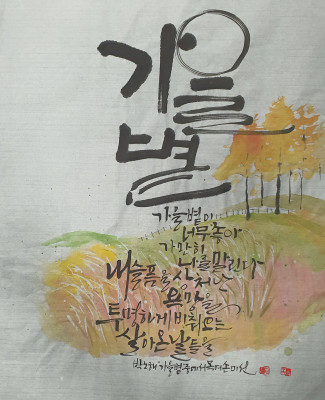 가을
볕
가을볕이
너무 좋아
가만히
나를 말린다
내 슬픔을 상처난
욕망을
투명하게 비춰오는
살아온 날들을
박노해 가을볕 중에서